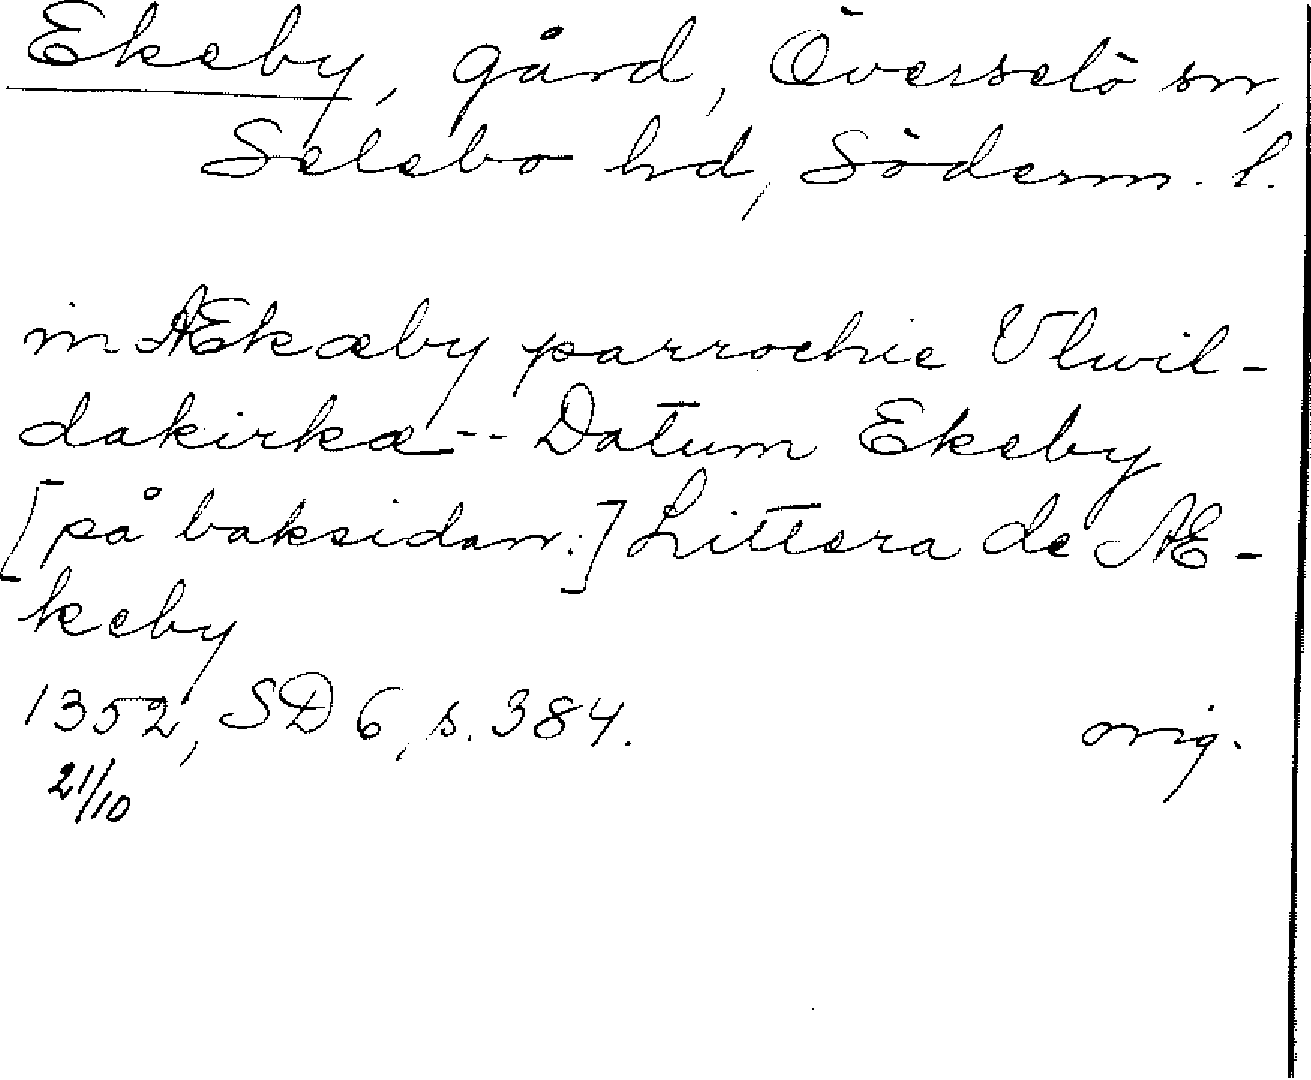 Ekeby, gård, Överselö sn,
Selebo hd, Söderm. l.
in Ækæby parrochie Vlwil-
dakirkæ -- Datum Ekeby
[på baksidan:] Littera de Æ-
keby
1352, SD 6, s. 384. orig.
21/10